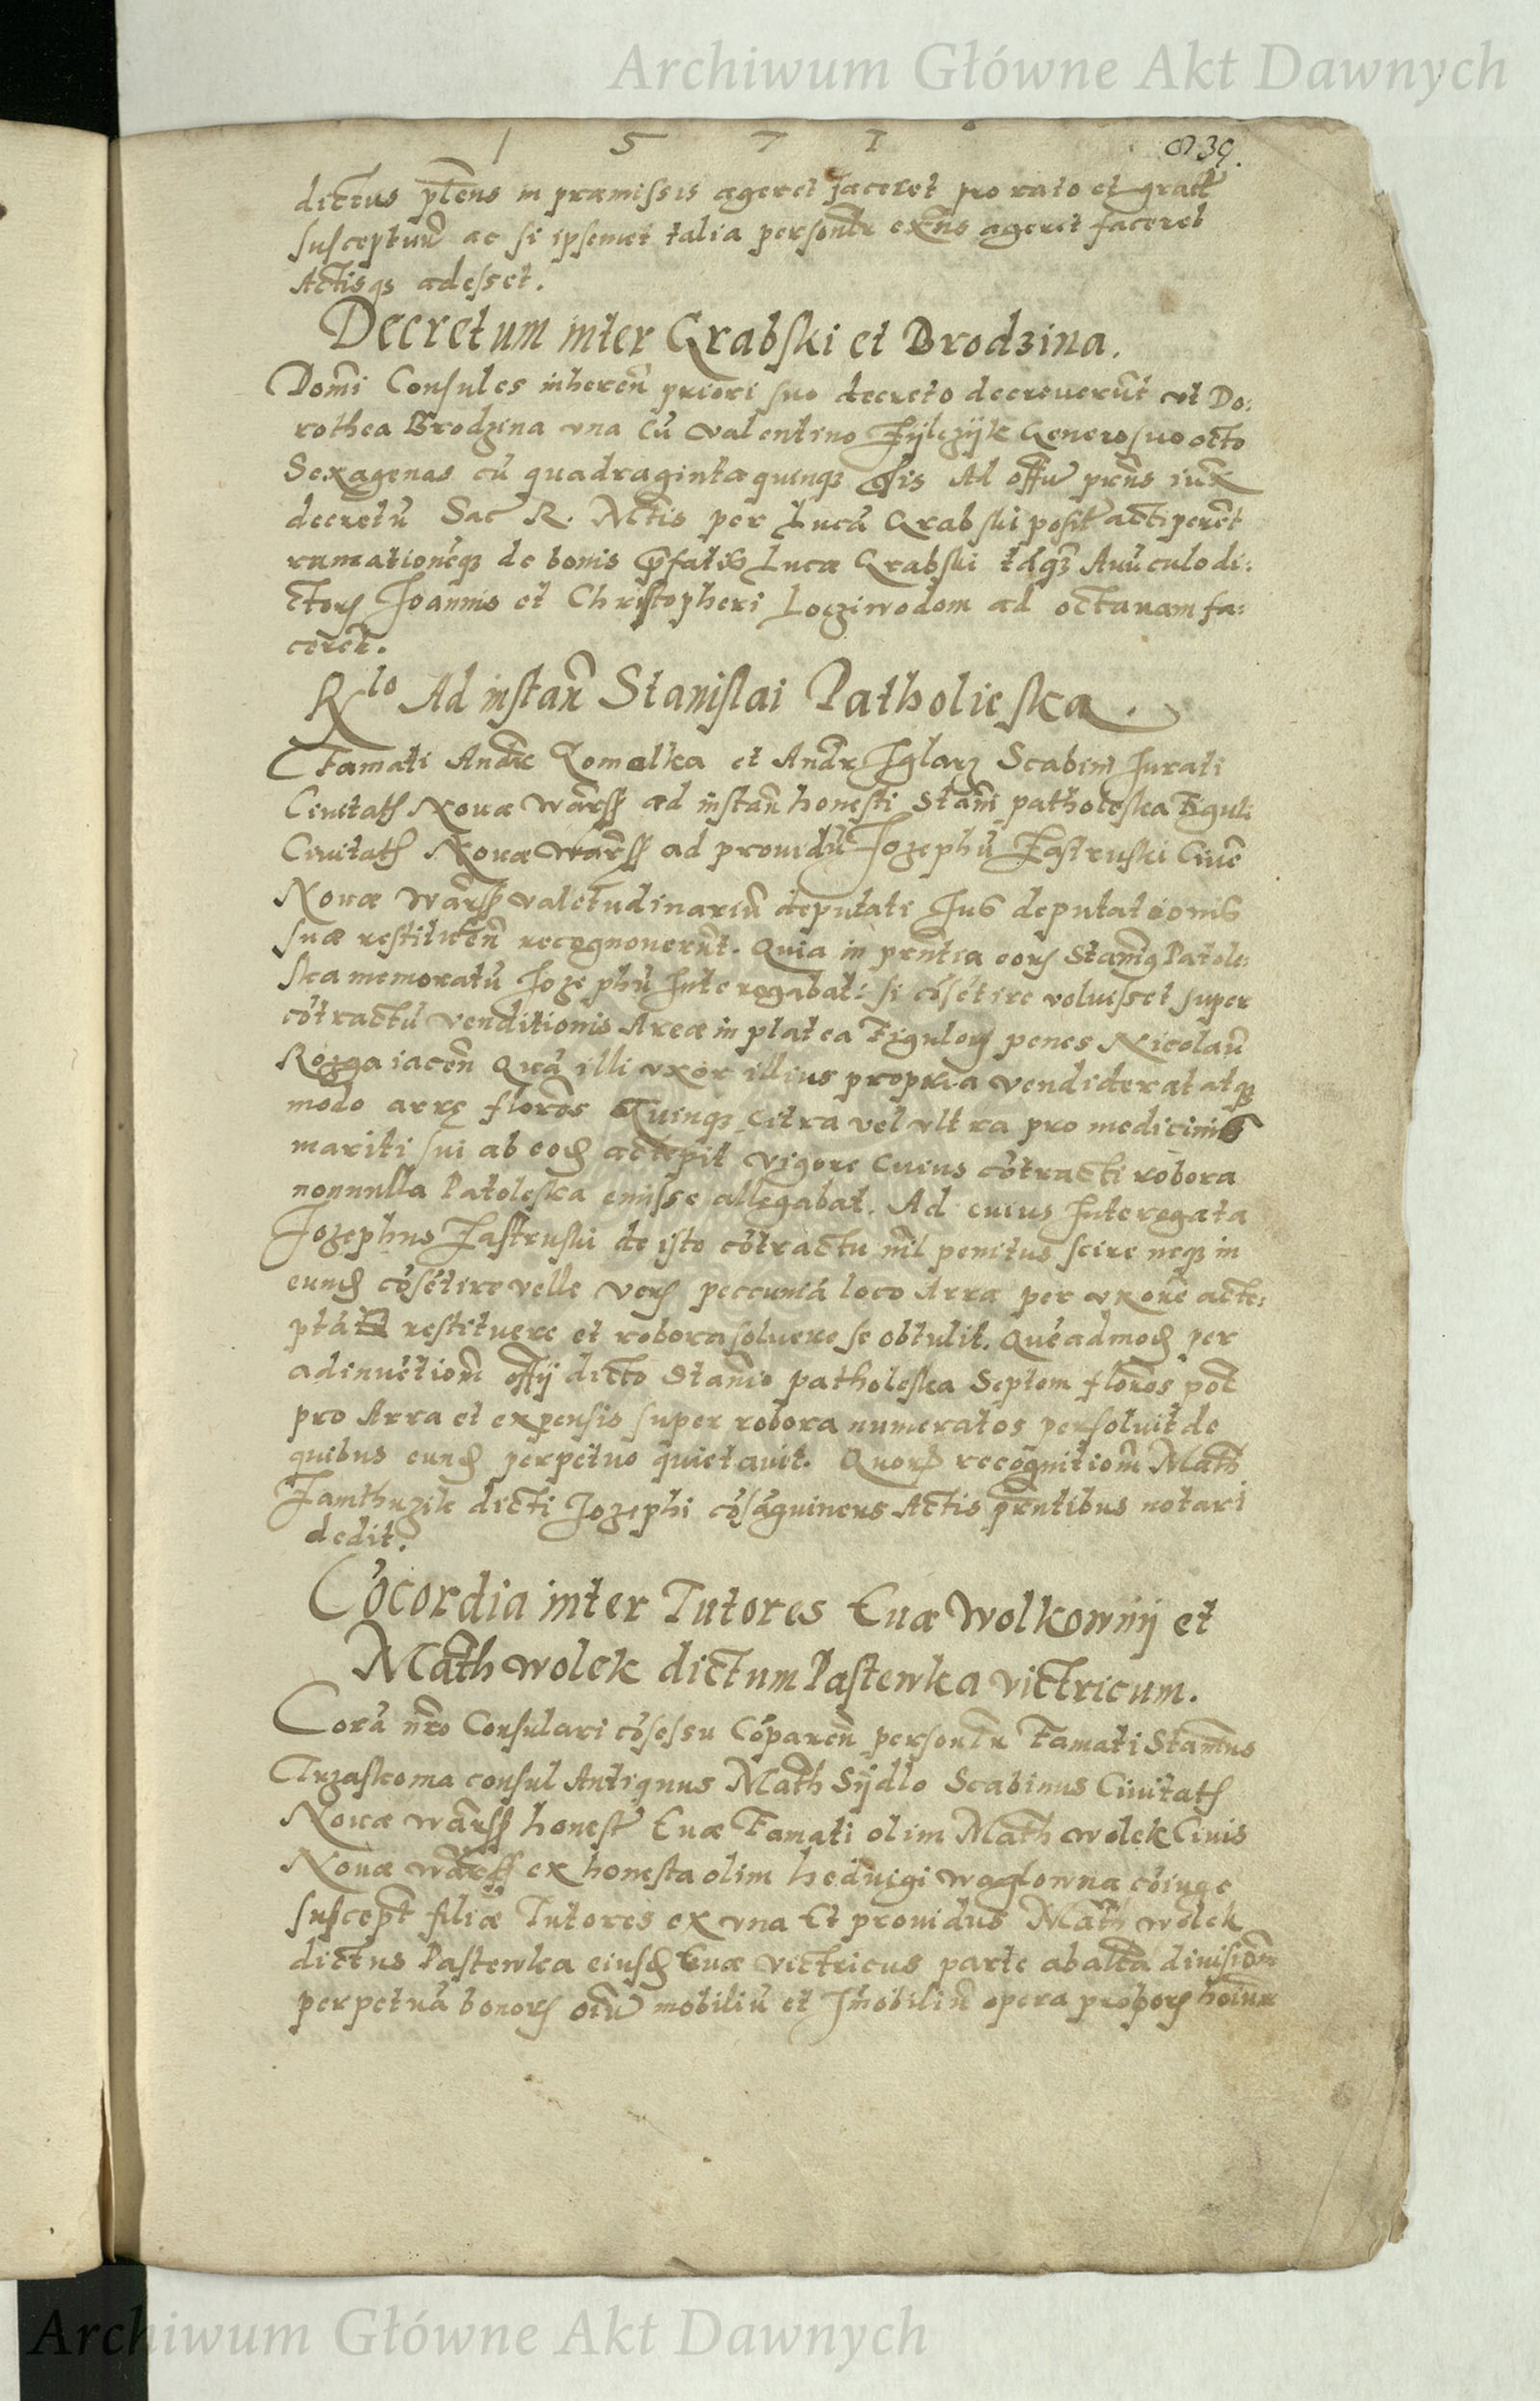 Archiwum Główne Akt Dawnych
1 5 7 1
839.
dictus pleñs in præmissis ageret faceret pro rato et gratt
susceptuũ ac si ipsemet talia personlr exñs ageret faceret
Actisqs adesset.
Decretum inter Grabski et Brodzina.
Domi Consules inheren̄ priori suo decreto decreuerũt ut Do:
rothea Brodzina vna cũ valentino Fijlczijk Genero suo octo
Sexagenas cũ quadraginta quinqz ad offiũ prñs iux
decretũ Sac R. Mtis per Lucã Grabski posit
de bonis Lucæ Grabski Auũculo di:
ctorʒ Joannis et Christopheri Loziwodom ad octauam fa:
ceret.
Rlo Ad instan̄ Stanislai Patholieska.
Famati Andrc Gomolka et Andr Iglarz Scabini Jurati
Ciuitatʒ Nouæ Warss ad instan̄ honesti Stani patholeska Figuli
Ciuitatʒ Nouæ Warss ad prouidũ Jozephũ Jastruski Ciuẽ
Nouæ Warss valetudinariũ deputati Jus deputationis
suæ restituen̄ recognouerũt. Quia in prñtia eorʒ Stanisqʒ Patole:
ska memoratũ Jozephũ Interogabat: si cõsẽtire voluisset super
cõtractũ venditionis Areæ in platea Figulorʒ penes Nicolaũ
Rozga iacen̄ Quã illi vxor illius propria vendiderat atqz
modo arrę florẽos Quinqz citra vel vltra pro medicinis
mariti sui ab eodʒ accepit vigore cuius cõtracti robora
nonnulla Patoleska emisse allegabat. Ad cuius Interogata
Jozephus Jastruski de isto cõtractu nil penitus scire neqz in
eundʒ cõsẽtire velle verʒ peccuniã loco Arræ per vxorẽ acce:
ptã restituere et robora soluere se obtulit. Quẽadmodʒ per
adinuẽtion̄ offij dicto Stanio patholeska Septem florẽos pol
pro Arra et expensis super robora numeratos persoluit de
quibus eundʒ perpetuo quietauit. Quorʒ recognition̄ Math
Jamthuzik dicti Jozephi cõsãguineus Actis prñtibus notari
dedit.
Cõcordia inter Tutores Euæ Wolkownij et
Math wolek dictum Pastewka victricum.
Corã nr̃o Consulari cõsessu Cõparen̄ personlr Famati Stan̄us
Trzaskoma consul Antiquus Math Sijdlo Scabinus Ciuitatʒ
Nouæ Warss honest Euæ Famati olim Math wolek Ciuis
Nouæ Warss ex honesta olim heduigi woglowna cõiuge
suscept filiæ Tutores ex vna Et prouidus Math wolek
dictus Pastewka eiusdʒ Euæ victricus parte ab altã diuision̄
perpetuã bonorʒ oĩũ mobiliũ et Imobiliũ opera proborʒ hoĩuʒ
Archiwum Główne Akt Dawnych